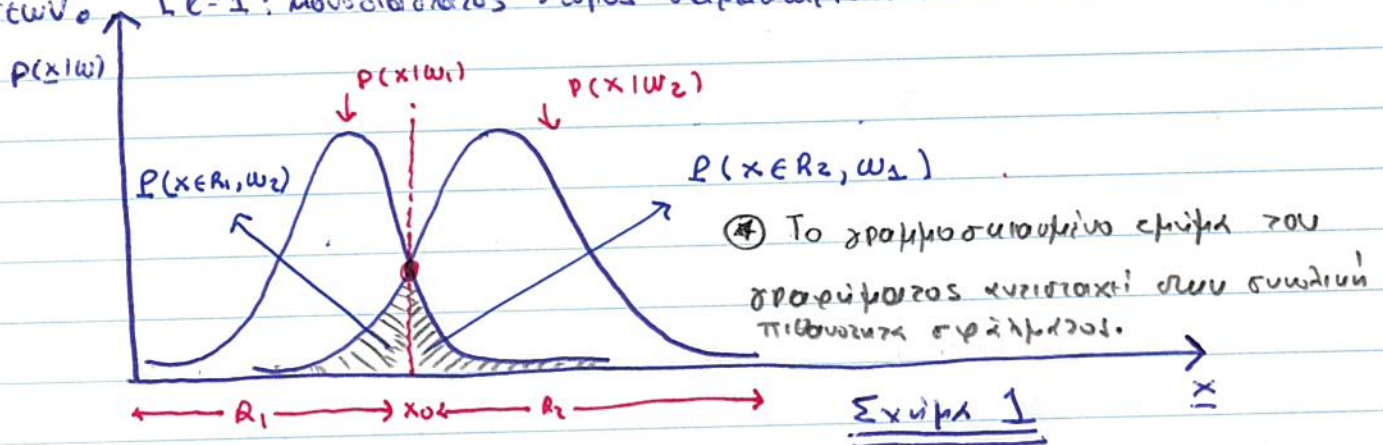 των.
p(x|ω)
p(x|ω₁)
p(x|ω₂)
P(x∈R₁,ω₂)
P(x∈R₂,ω₁)
⊛ Το γραμμοσκιασμένο τμήμα του
γραφήματος αντιστοιχεί στην συνολική
πιθανότητα σφάλματος.
R₁
x₀
R₂
x
Σχήμα 1